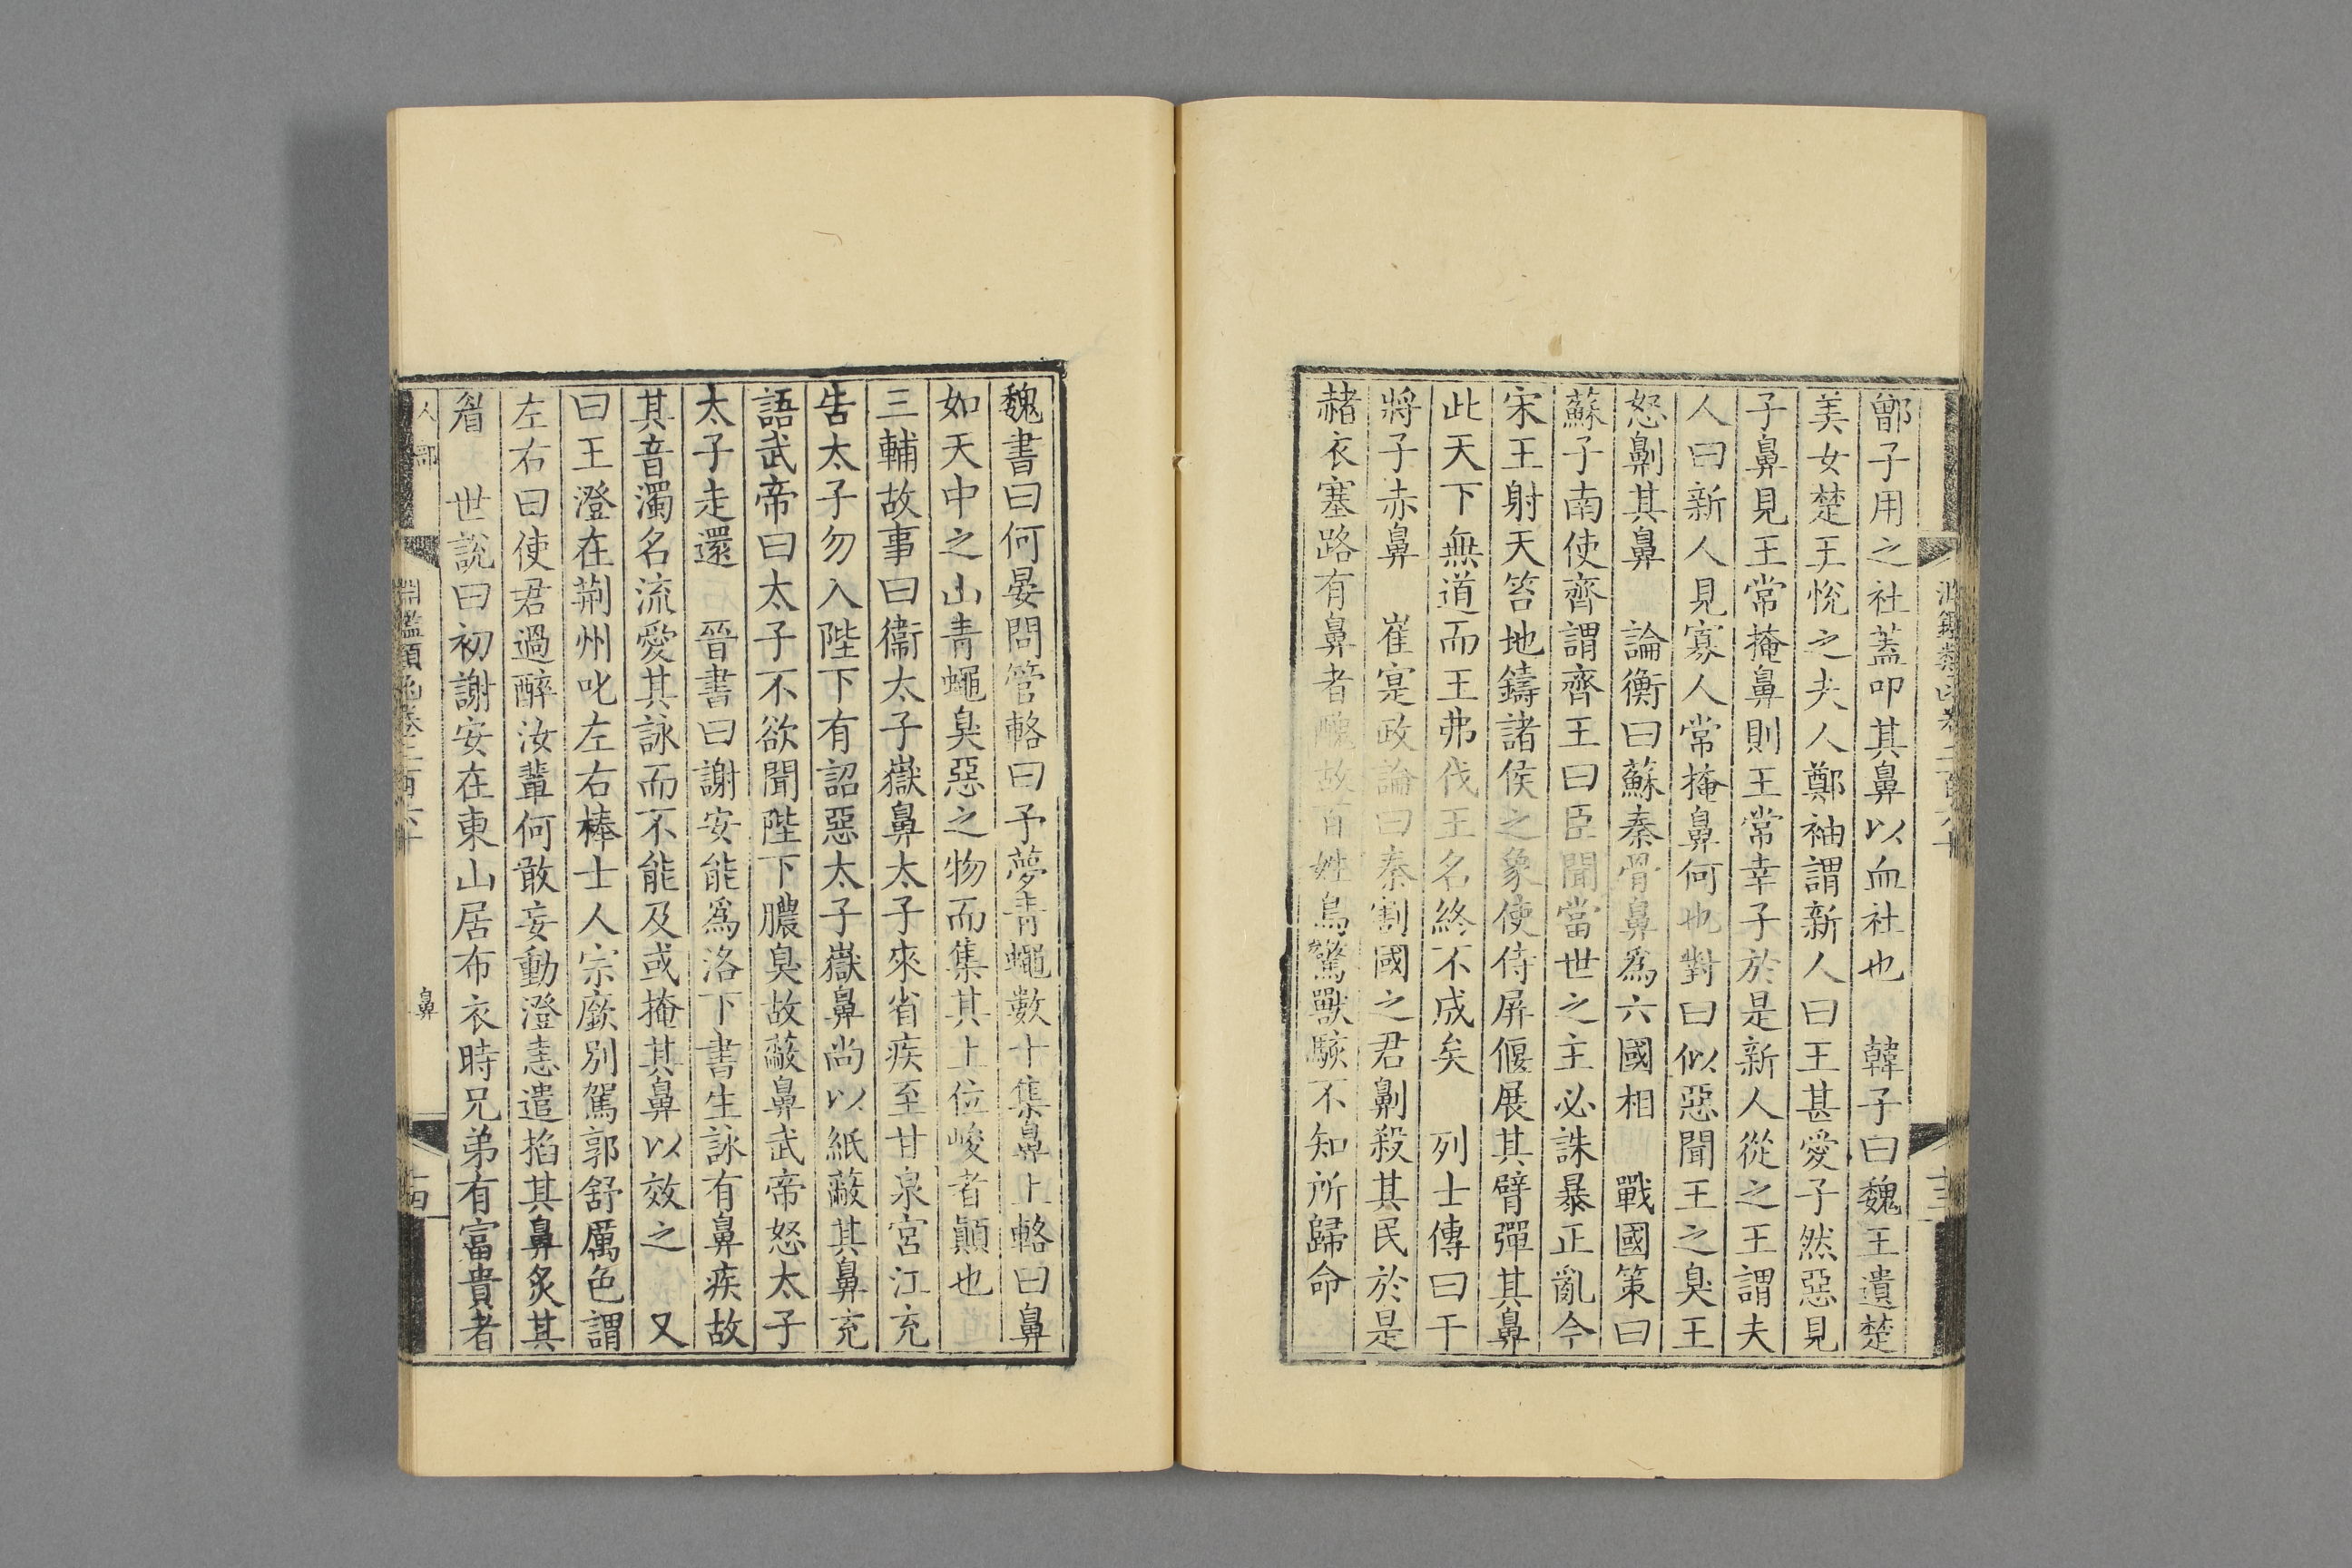 鄫子用之社蓋叩其鼻以血社也　韓子曰魏王遺楚
美女楚王悅之夫人鄭袖謂新人曰王甚愛子然惡見
子鼻見王常掩鼻則王常幸子於是新人從之王謂夫
人曰新人見寡人常掩鼻何也對曰似惡聞王之臭王
怒劓其鼻　論衡曰蘇秦骨鼻爲六國相　戰國策曰
蘇子南使齊謂齊王曰臣聞當世之主必誅暴正亂今
宋王射天笞地鑄諸侯之象使侍屏偃展其臂彈其鼻
此天下無道而王弗伐王名終不成矣　列士傳曰干
將子赤鼻　崔寔政論曰秦割國之君劓殺其民於是
赭衣塞路有鼻者醜故百姓鳥驚獸駭不知所歸命
魏書曰何晏問管輅曰予夢青蠅數十集鼻上輅曰鼻
如天中之山青蠅臭惡之物而集其上位峻者顚也
三輔故事曰衞太子嶽鼻太子來省疾至甘泉宮江充
告太子勿入陛下有詔惡太子嶽鼻尚以紙蔽其鼻充
語武帝曰太子不欲聞陛下膿臭故蔽鼻武帝怒太子
太子走還　晉書曰謝安能爲洛下書生詠有鼻疾故
其音濁名流愛其詠而不能及或掩其鼻以效之　又
曰王澄在荆州叱左右棒士人宗廞別駕郭舒厲色謂
左右曰使君過醉汝輩何敢妄動澄恚遣掐其鼻炙其
眉　世說曰初謝安在東山居布衣時兄弟有富貴者
人部
淵鑑類函卷二百六十
鼻
十四